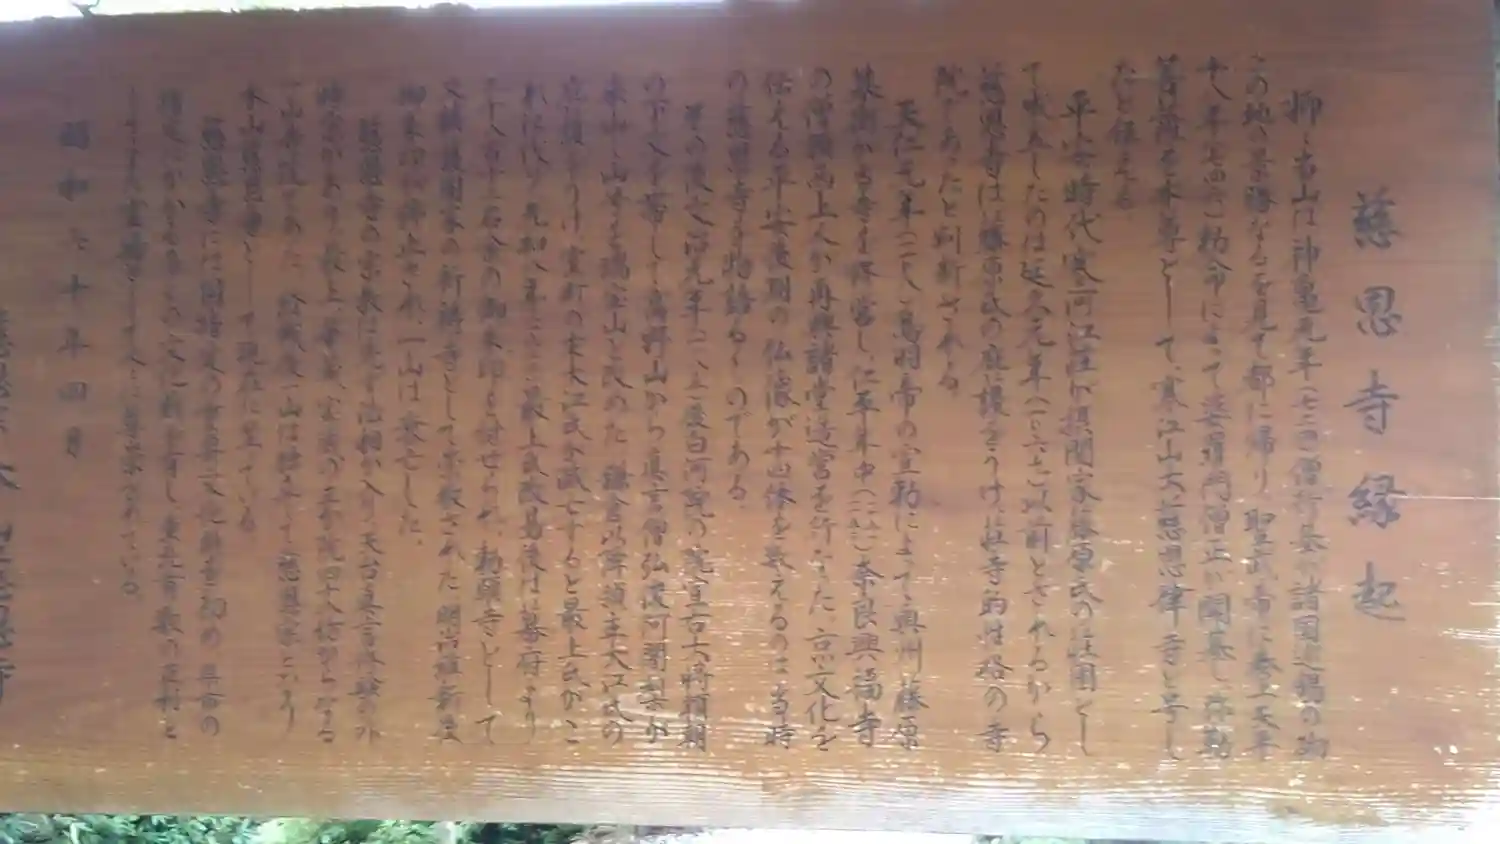 慈恩寺縁起
抑々当山は神亀元年(七二四)僧行基が諸国巡錫の砌
この地の景勝なるを見て都に帰り、聖武帝に奏上天平
十八年(七四六)勅命によって婆羅門僧正が開基し、弥勒
菩薩を本尊として、寒江山大慈恩律寺と号し
たと伝える。
平安時代寒河江荘が摂関家藤原氏の荘園とし
て成立したのは延久元年(一〇六九)以前とされるから
慈恩寺は藤原氏の庇護をうけ、荘寺的性格の寺
院であったと判断される。
天仁元年(一一〇八)鳥羽帝の宣勅によって奥州藤原
基衡が当寺を修営し、仁平年中 奈良興福寺
の僧願西上人が再興諸堂造営を行なった。京文化を
伝える平安後期の仏像が十四体を数えるのは、当時
の慈恩寺を物語るものである。
その後文治元年(一一八五)後白河院の院宣右大将頼朝
の下文を帯して、高野山から真言僧弘俊阿闍梨が
来山し山号を瑞宝山と改めた。鎌倉以降領主大江氏の
庇護をうけ、室町の末大江氏が滅亡すると最上氏がこ
れに代り、元和八年(一六二二)最上氏改易後は幕府より
二千八百十二石余の御朱印を付せられ、勅願寺として
又鎮護国家の祈祷寺として崇敬された。明治維新後
御朱印が停止され、一山は衰亡した。
慈恩寺の宗教は先ず法相が入り、天台真言修験が外
時宗があり、最上、華蔵、宝蔵の三ヶ院四十八坊からなる
一山寺院であった。終戦後一山は 慈恩宗という
本山慈恩寺として現在に至っている。
慈恩寺には国指定の重要文化財を初め、県市の
指定にかかる多くの文化財を有し、東北有数の巨刹と
してまた霊場として人々に尊崇されている。
昭和六十年四月
本山慈恩寺